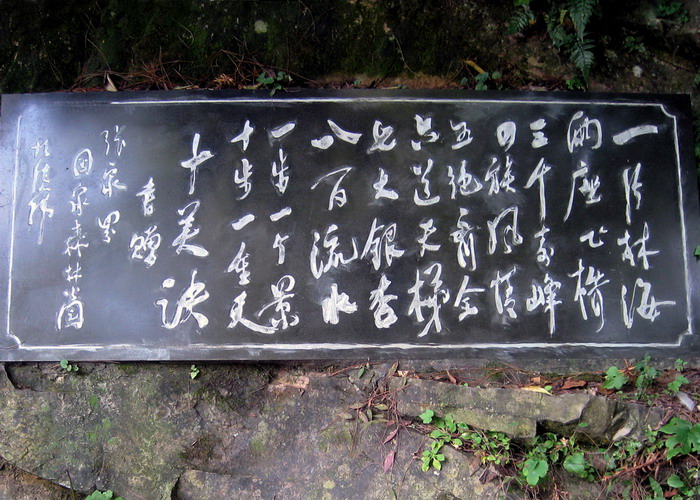 一片林海
两座飞桥
三千奇峰
四族风情
五绝齐全
六道天梯
七大银杏
八百流水
一步一个景
十步一重天
十美诀
書赠
张家界
国家森林公园